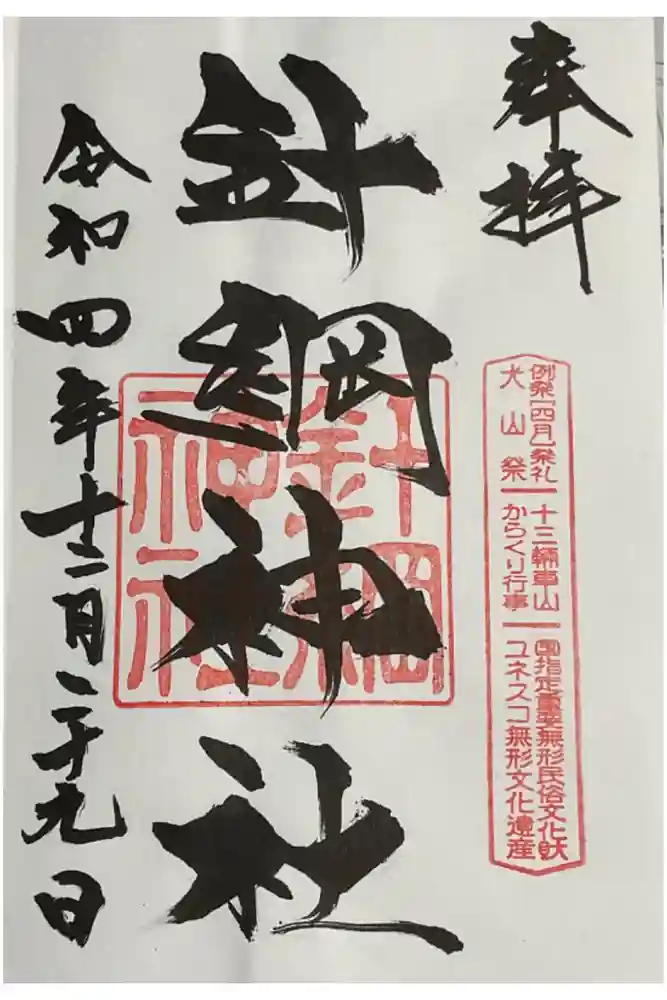 奉拝
例祭[四月]祭礼 十三輛車山 国指定重要無形民俗文化財
犬山祭 からくり行事 ユネスコ無形文化遺産
針綱神社
針綱
神社
令和四年十二月二十九日